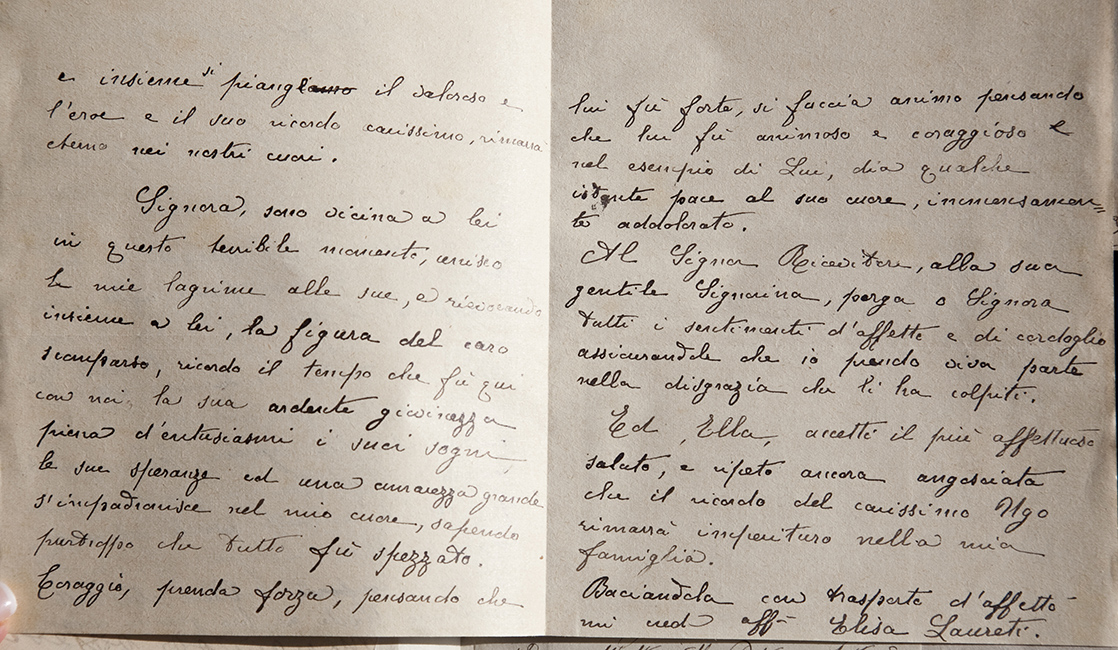 e insieme si piangiamo il valoroso e
l'eroe e il suo ricordo carissimo, rimarrà
eterno nei nostri cuori.
Signora, sono vicina a lei
in questo terribile momento, unisco
le mie lagrime alle sue, e rievocando
insieme a lei, la figura del caro
scomparso, ricordo il tempo che fù qui
con noi, la sua ardente giovinezza
piena d'entusiasmi i suoi sogni,
le sue speranze ed una amarezza grande
s'impadronisce nel mio cuore, sapendo
purtroppo che tutto fù spezzato.
Coraggio, prenda forza, pensando che
lui fù forte, si faccia animo pensando
che lui fù animoso e coraggioso e
nel esempio di Lui, dia qualche
istante pace al suo cuore, immensamen=
te addolorato.
Al Signor Ricevitore, alla sua
gentile Signorina, porga o Signora
tutti i sentimenti d'affetto e di cordoglio
assicurandole che io prendo viva parte
nella disgrazia che li ha colpiti.
Ed Ella, accetti il più affettuoso
saluto, e ripeto ancora angosciata
che il ricordo del carissimo Ugo
rimarrà imperituro nella mia
famiglia.
Baciandola con trasporto d'affetto
mi creda aff- Elisa Laureti.